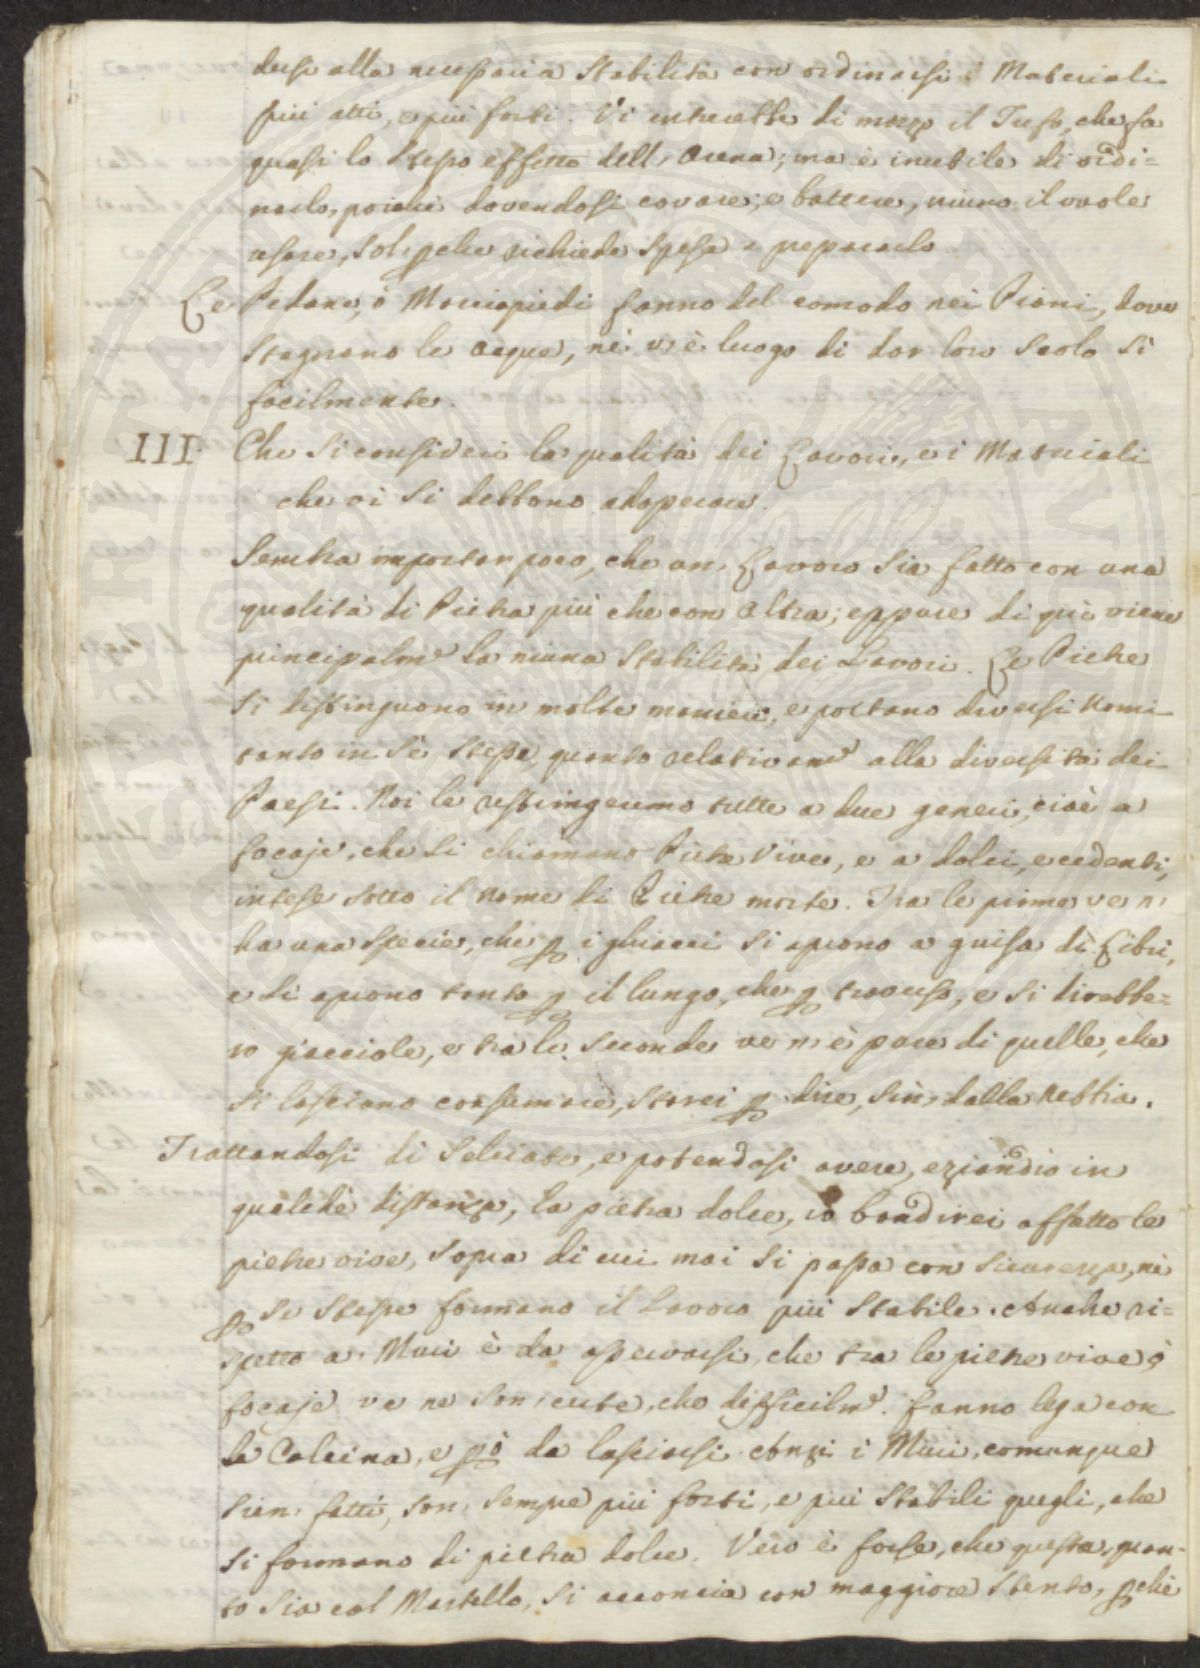 dersi alla necessaria Stabilità con ordinarsi i Materiali
più atti, e più forti. Vi entrerebbe di mezzo il Tufo, che fa
quasi lo stesso effetto dell'Arena; ma è inutile di ordi=
narlo, poiché dovendosi cavare, e battere, niuno il vuole
usare, sol pche richiede Spesa a prepararlo.
Le Pedane, ò Marciapiedi fanno del comodo nei Piani, dove
Stagnano le Acque, nè v'è luogo di dar loro Scolo sì
facilmente.
III. Che si consideri la qualità dei Lavori, e i Materiali
che vi si debbono adoperare.
Sembra importar poco, che un Lavoro sia fatto con una
qualità di Pietra più che con altra; eppure di quì viene
principalmᵉ la niuna Stabilità dei Lavori. Le Pietre
si distinguono in molte maniere, e portano diversi Nomi
tanto in Sè Stesse, quanto relativamᵉ alla diversità dei
Paesi. Noi le restringeremo tutte a due generi, cioè a
focaje, che si chiamano Pietre Vive, e a dolci, e cedenti,
intese sotto il nome di Pietre morte. Tra le prime ve n'
ha una Specie, che p i ghiacci si aprono a guisa di Libri,
e si aprono tanto p il lungo, che p traverso, e si direbbe=
ro giacciole, e tra le Seconde ve n'è pure di quelle, che
si lasciano consumare, starei p dire, sin dalla Nebbia.
Trattandosi di Selciate, e potendosi avere, eziandio in
qualche distanza, la pietra dolce, io bandirei affatto le
pietre vive, sopra di cui mai si passa con sicurezza, nè
p Se Stesse formano il Lavoro più Stabile. Anche ri=
spetto a' Muri è da osservarsi, che tra le pietre vive, ò
focaje ve ne son certe, che difficilmᵉ fanno lega con
la Calcina, e pò da lasciarsi. Anzi i Muri, comunque
sien fatti, son sempre più forti, e più Stabili quegli, che
si formano di pietra dolce. Vero è forse, che questa, quan-
to sia col Martello, si acconcia con maggiore Stento, pchè